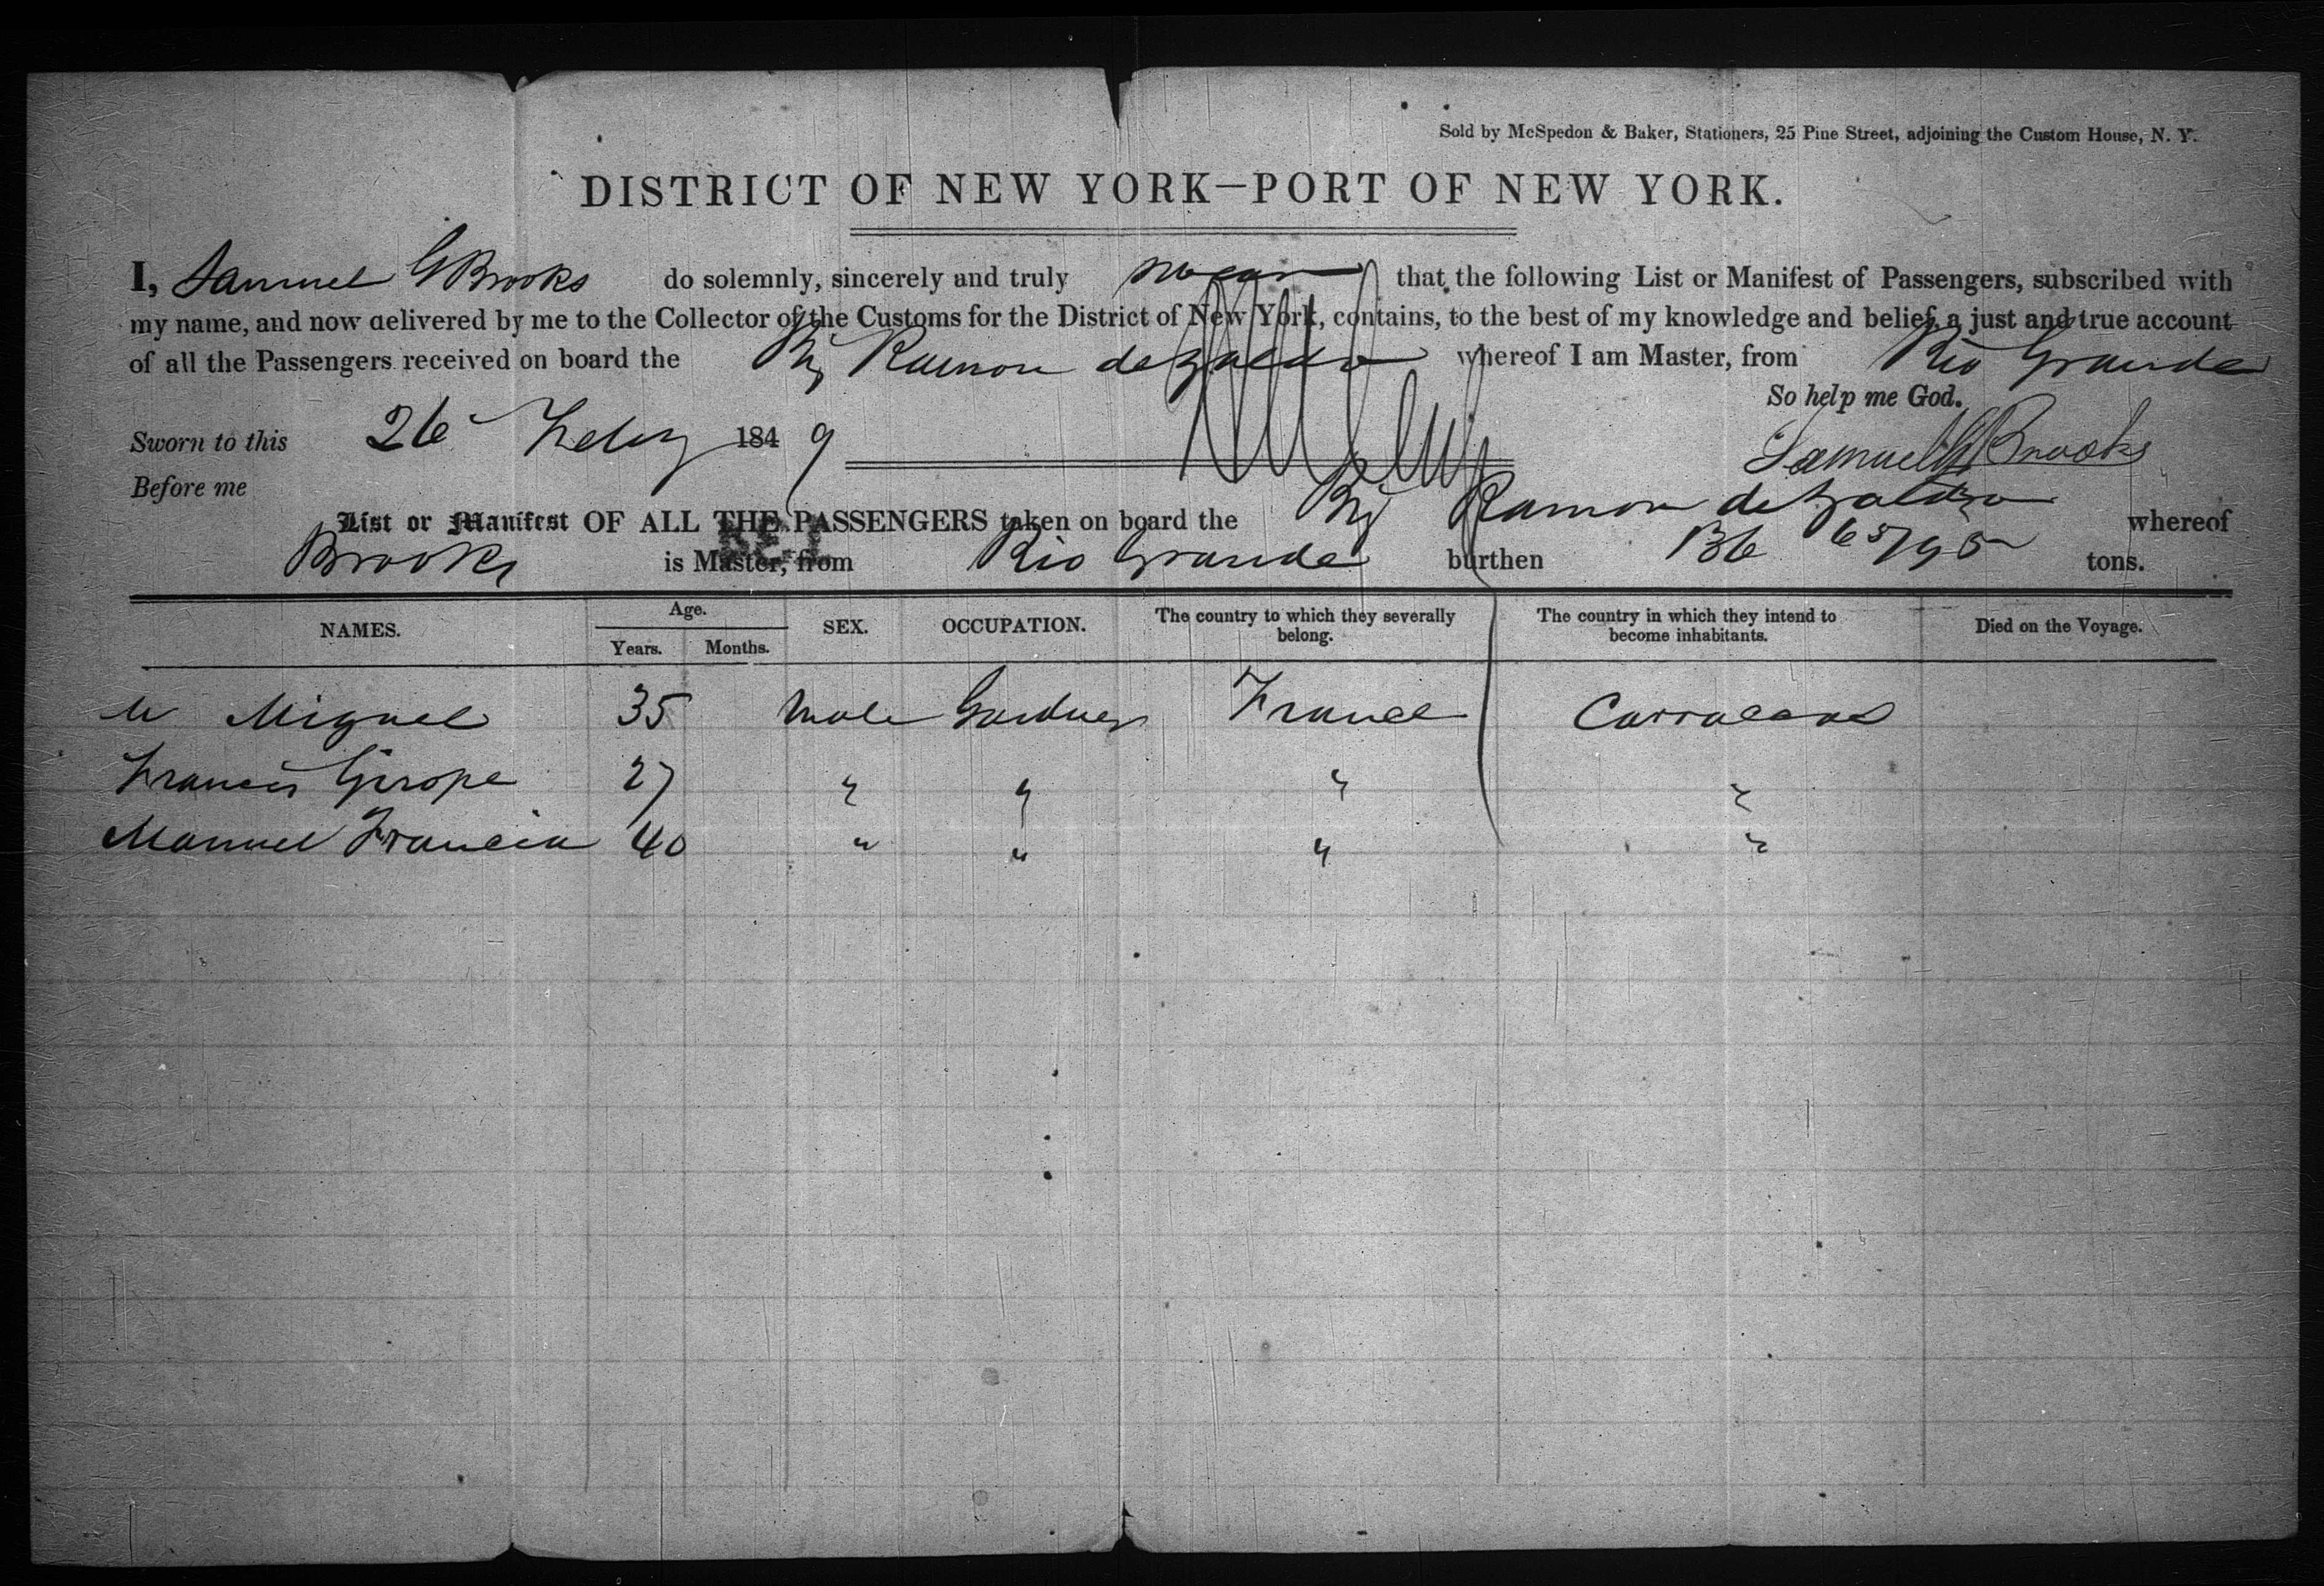 Sold by McSpedon & Baker, Stationers, 25 Pine Street, adjoining the Custom House, N. Y.
DISTRICT OF NEW YORK—PORT OF NEW YORK.
I, Samuel G Brooks do solemnly, sincerely and truly swear that the following List or Manifest of Passengers, subscribed with
my name, and now delivered by me to the Collector of the Customs for the District of New York, contains, to the best of my knowledge and belief, a just and true account
of all the Passengers received on board the Brig Ramon de Zaldo whereof I am Master, from Rio Grande
So help me God.
Sworn to this 26 Feby 1849
Samuel G Brooks
Before me
List or Manifest OF ALL THE PASSENGERS taken on board the Brig Ramon de Zaldo whereof
Brooks is Master, from Rio Grande burthen 136 65/95 tons.
NAMES. Age. Years. Months. SEX. OCCUPATION. The country to which they severally belong. The country in which they intend to become inhabitants. Died on the Voyage.
Miguel 35 Male Gardner France
Francis Girope 27 " " " "
Manuel Francia 40 " " " "